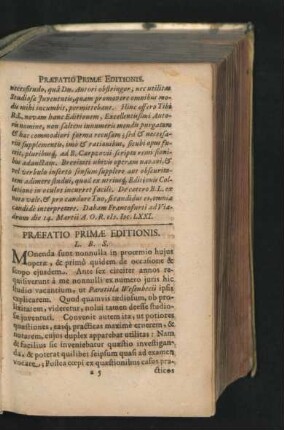 PRÆFATIO PRIMÆ EDITIONIS.
necessitudo, quâ Dn. Autori obstringor, nec utilitas
Studiosæ Juventutis, quam promovere omnibus mo-
dis mihi incumbit, permittebant. Hinc offero Tibi
B.L. novam hanc Editionem, Excellentissimi Auto-
ris nomine, non saltem innumeris mendis purgatam
& hac commodiori forma recusam; sed & necessa-
riis supplementis, imò & rationibus, sicubi opus fue-
rit, pluribusq; ad B. Carpzovii scripta remissioni-
bus adauctam. Brevitati ubivis operam navavi, &
vel verbulo inserto sensum supplere aut obscurita-
tem adimere studui, quod ex utriusq; Editionis Col-
latione in oculos incurret facilè. De cetero B.L. ex
voto vale, & pro candore Tuo, si tandidus es, omnia
candidè interpretare. Dabam Francofurti ad Via-
drum die 24. Martii A. O. R. cIɔ. Iɔc. LXXI.
PRÆFATIO PRIMÆ EDITIONIS.
L. B. S.
Monenda sunt nonnulla in prooemio hujus
operæ, & primò quidem de occasione &
scopo ejusdem. Ante sex circiter annos re-
quisiverunt à me nonnulli ex numero juris hic
Studio vacantium, ut Paratitla Wesenbecii ipsis
explicarem. Quod quamvis tædiosum, ob pro-
lixitatem, videretur, nolui tamen deesse studio-
sæ juventuti. Convenit autem ita, ut potiores
quæstiones, easq; practicas maximè eruerem, &
notarem, cujus duplex apparebat utilitas: Nam
& facilius sic inveniebatur quæstio investigan-
da, & poterat quilibet seipsum quasi ad examen
vocare. Postea cœpi ex quæstionibus casus pra-
a 5 cticos